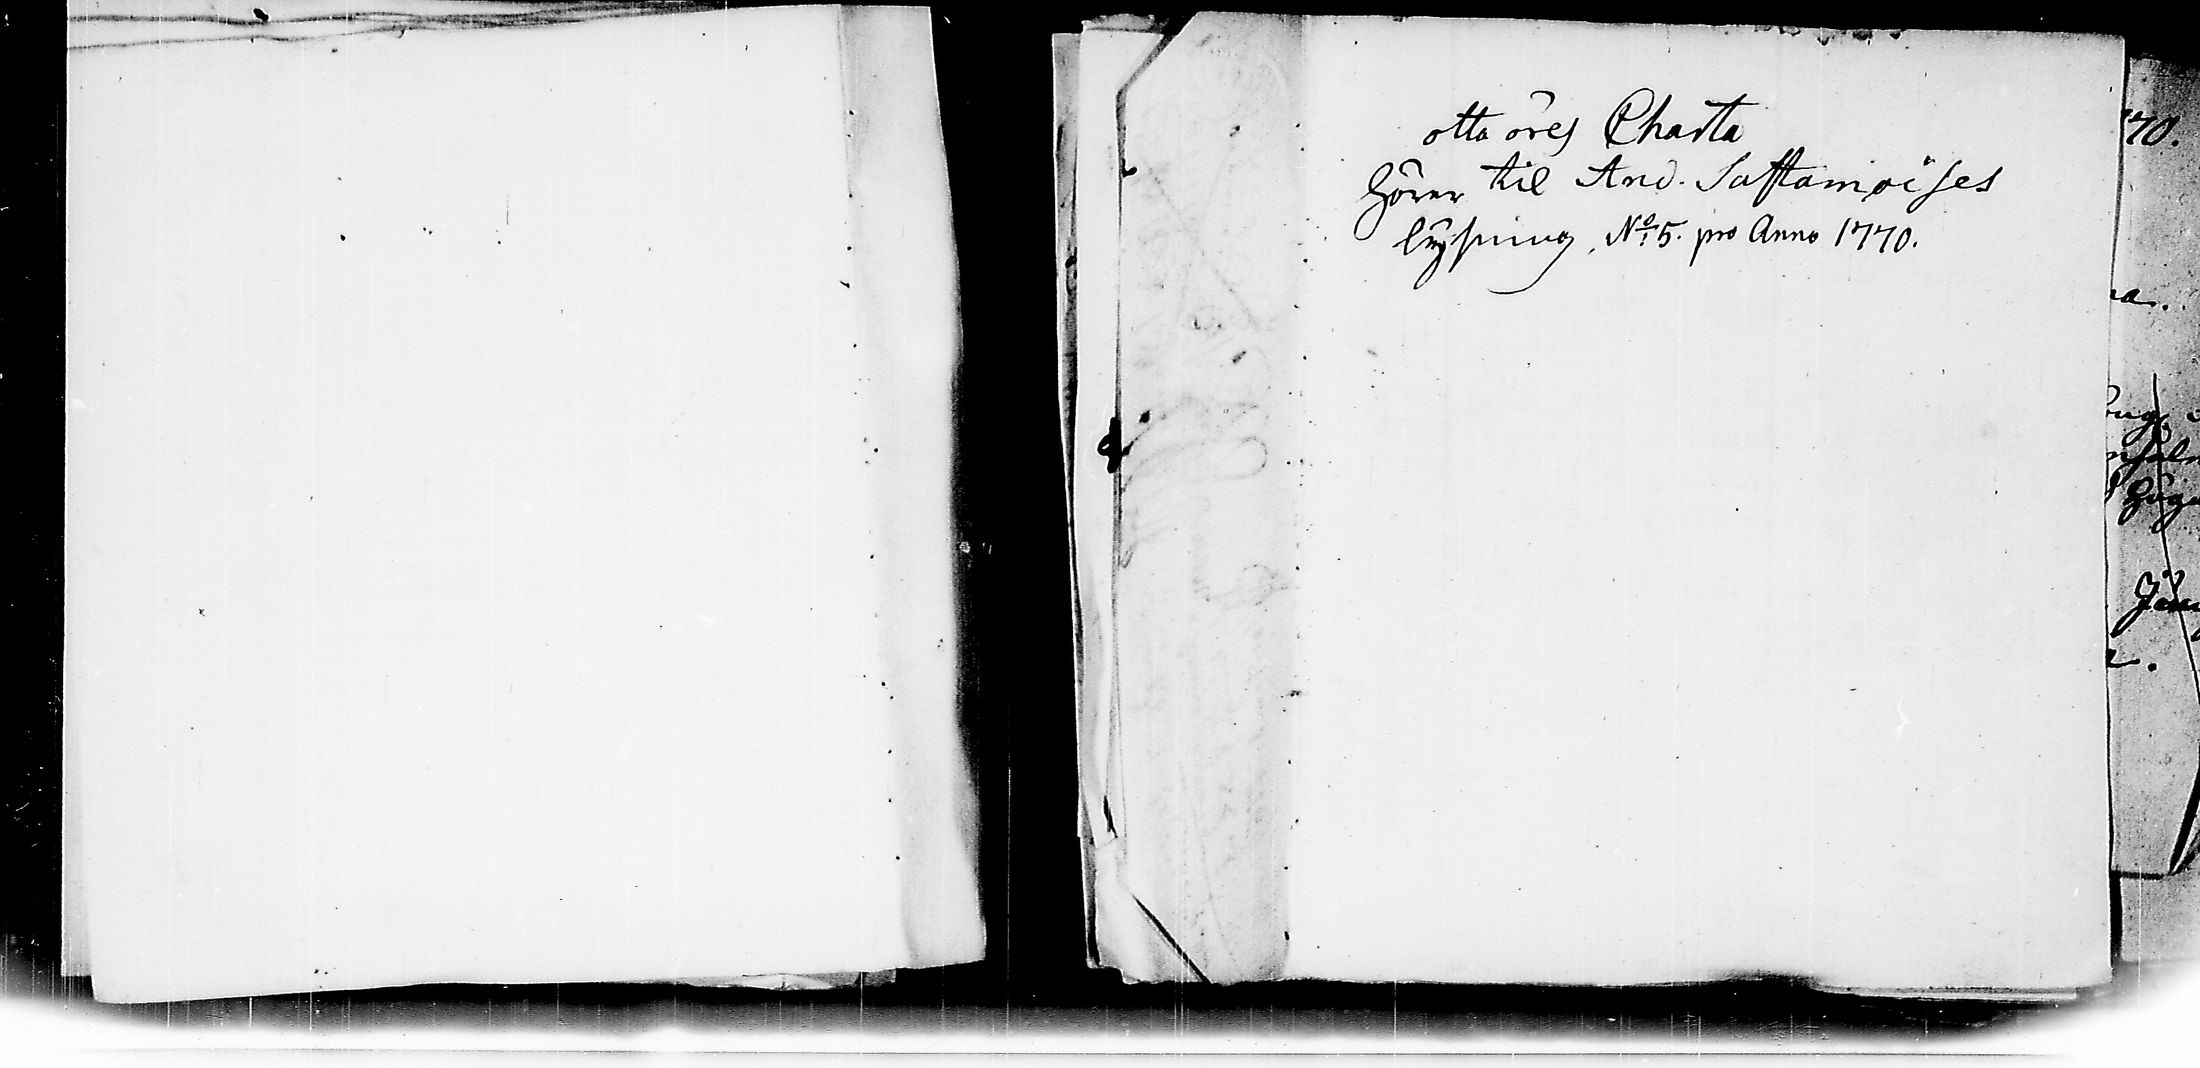 otta öres Charta
hörer til And. Saftamoises
lysning, No: 5. pro Anno 1770.
70.